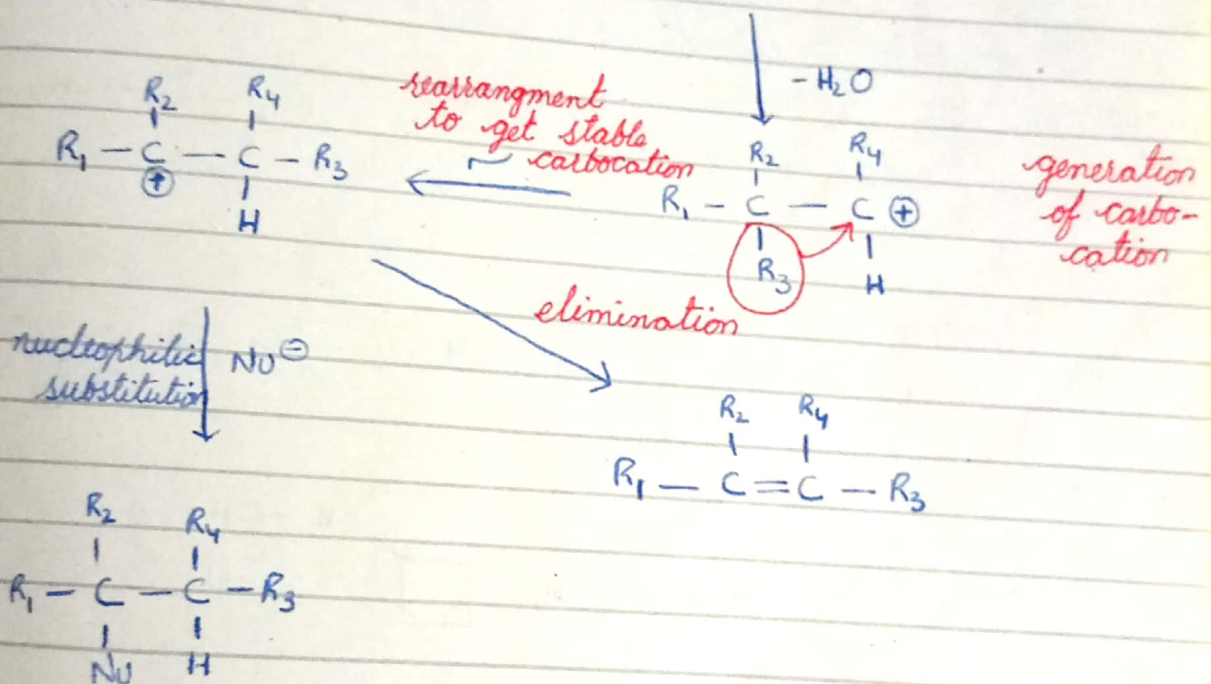 - H₂O
rearrangment
to get stable
carbocation
R₂ R₄
R₁ – C – C – R₃
⊕
H
R₂ R₄
R₁ – C – C ⊕
R₃ H
generation
of carbo-
cation
elimination
nucleophilic
substitution
Nu⊖
R₂ R₄
R₁ – C = C – R₃
R₂ R₄
R₁ – C – C – R₃
Nu H